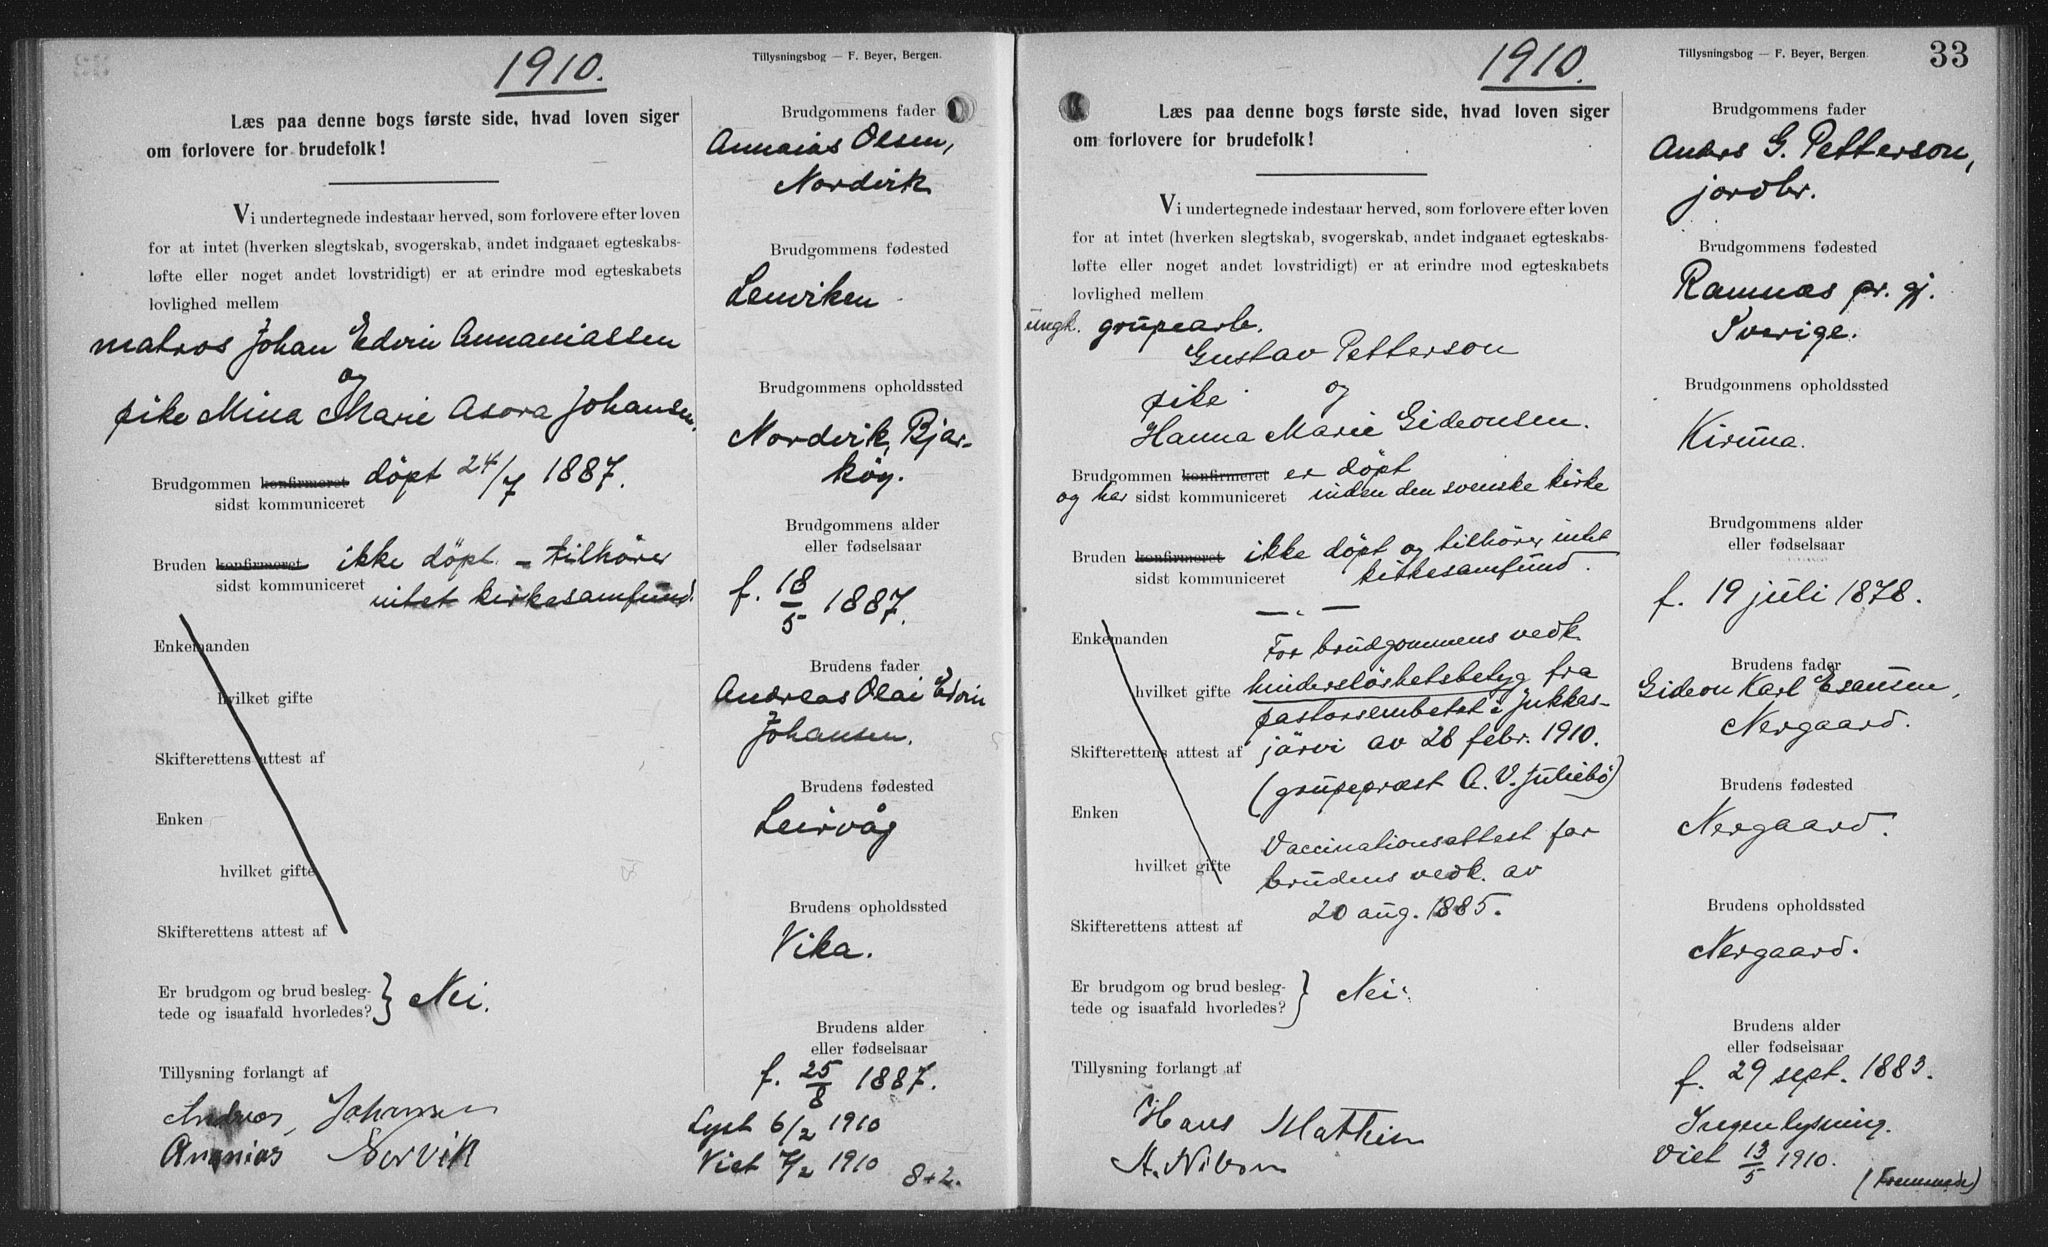 1910.
Tillysningsbog — F. Beyer, Bergen.
Læs paa denne bogs første side, hvad loven siger
om forlovere for brudefolk!
Vi undertegnede indestaar herved, som forlovere efter loven
for at intet (hverken slegtskab, svogerskab, andet indgaaet egteskabs-
løfte eller noget andet lovstridigt) er at erindre mod egteskabets
lovlighed mellem
matros Johan Edvin Annaniassen
og
pike Mina Marie Asora Johansen.
Brudgommen konfirmeret döpt 24/7 1887.
sidst kommuniceret
Bruden konfirmeret ikke döpt. – tilhörer
sidst kommuniceret intet kirkesamfund.
Enkemanden
hvilket gifte
Skifterettens attest af
Enken
hvilket gifte
Skifterettens attest af
Er brudgom og brud besleg-
tede og isaafald hvorledes? } Nei.
Tillysning forlangt af
Andreas Johansen
Ananias Norvik
Brudgommens fader
Annaias Olsen,
Nordvik
Brudgommens fødested
Lenviken
Brudgommens opholdssted
Nordvik, Bjar-
köy.
Brudgommens alder
eller fødselsaar
f. 18/5 1887.
Brudens fader
Andreas Olai Edvin
Johansen.
Brudens fødested
Leirvåg
Brudens opholdssted
Vika.
Brudens alder
eller fødselsaar
f. 25/8 1887.
Lyst 6/2 1910
Viet 7/2 1910
8+2.
1910.
Tillysningsbog — F. Beyer, Bergen.
33
Læs paa denne bogs første side, hvad loven siger
om forlovere for brudefolk!
Vi undertegnede indestaar herved, som forlovere efter loven
for at intet (hverken slegtskab, svogerskab, andet indgaaet egteskabs-
løfte eller noget andet lovstridigt) er at erindre mod egteskabets
lovlighed mellem
ungk. grupearb.
Gustav Petterson
pike og
Hanna Marie Gideonsen.
Brudgommen konfirmeret er döpt
og har sidst kommuniceret inden den svenske kirke
Bruden konfirmeret ikke döpt og tilhörer intet
sidst kommuniceret kirkesamfund.
— " —
Enkemanden For brudgommens vedk.
hvilket gifte hinderslöshetsbetyg fra
pastorsembetet i Jukkas-
Skifterettens attest af järvi av 28 febr. 1910.
(grupepræst A. V. Juliebö)
Enken
Vaccinationsattest for
hvilket gifte brudens vedk. av
20 aug. 1885.
Skifterettens attest af
Er brudgom og brud besleg-
tede og isaafald hvorledes? } Nei.
Tillysning forlangt af
Hans Mathisen
A. Nilsen
Brudgommens fader
Anders G. Petterson,
jordbr.
Brudgommens fødested
Ramnäs pr. gj.
Sverige.
Brudgommens opholdssted
Kiruna.
Brudgommens alder
eller fødselsaar
f. 19 juli 1878.
Brudens fader
Gideon Karl Esausen,
Nergaard.
Brudens fødested
Nergaard.
Brudens opholdssted
Nergaard.
Brudens alder
eller fødselsaar
f. 29 sept. 1883.
Ingen lysning.
Viet 13/5 1910.